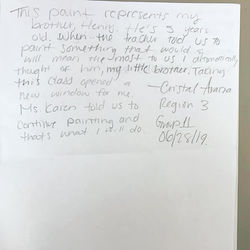 This paint represents my
brother, Henry. He's 3 years
old. When the teacher told us to
paint something that would
will mean the most to us I automatically
thought of him, my little brother. Taking
this class opened a
new window for me.
Ms. Karen told us to
continue painting and
that's what I'll do.
—Cristal
Region 3
Group 11
06/28/19.